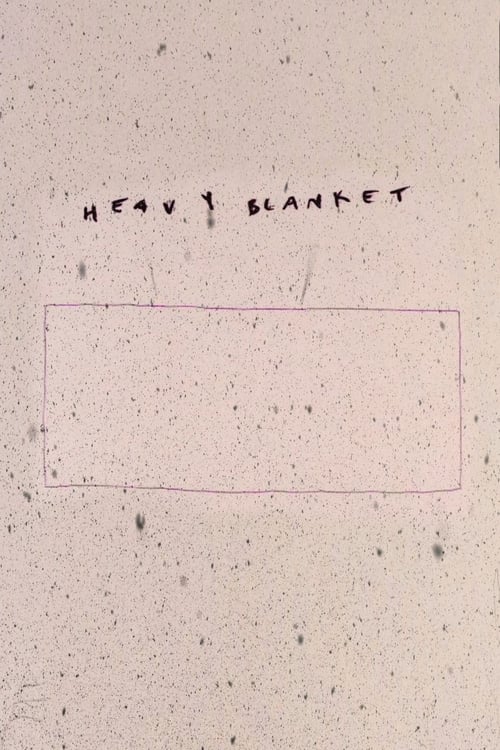 HEAVY BLANKET